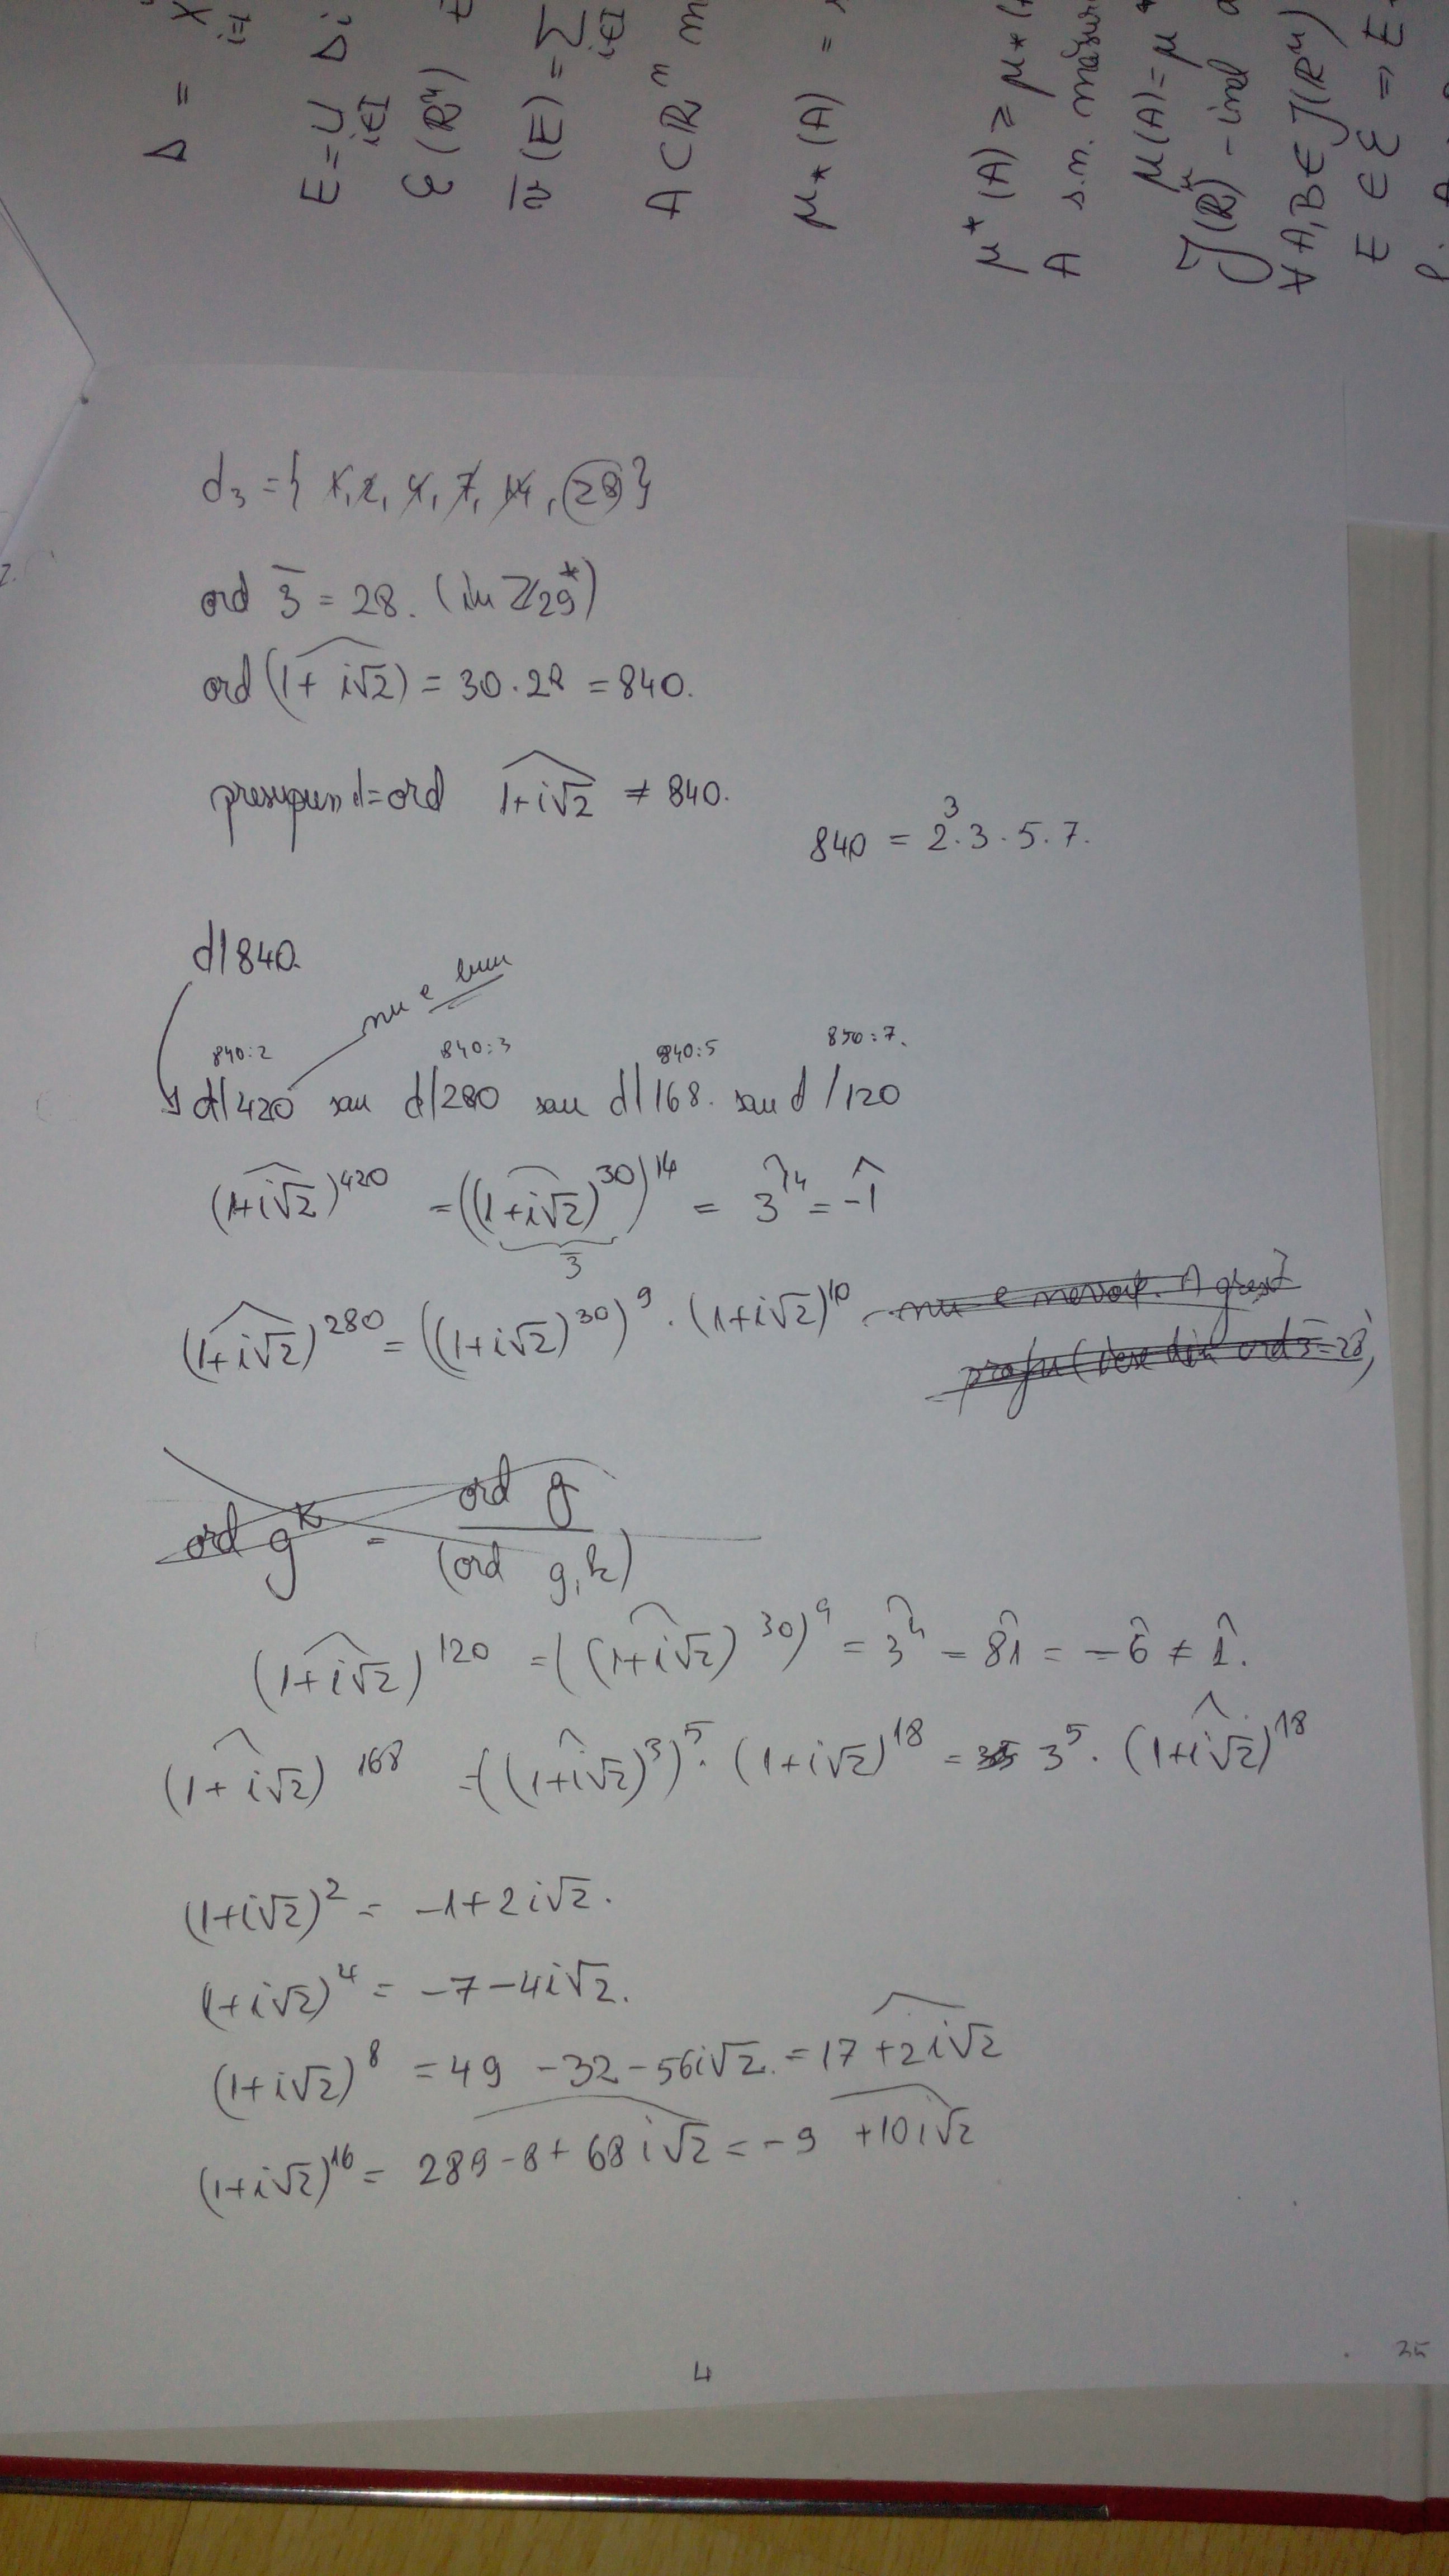 Δ =
i=1
E = ⋃ Δi
i∈I
ℰ(ℝⁿ)
v̄(E) = ∑
i∈I
A ⊂ ℝⁿ m
μ⋆(A) =
μ*(A) ≥ μ⋆
A s.n. măsur
μ(A) = μ
J(ℝⁿ) - inel
∀ A,B ∈ J(ℝⁿ)
E ∈ ℰ ⇒ E
d₃ = { 1, 2, 4, 7, 14, 28 }
ord 3̄ = 28. (în ℤ₂₉*)
ord (1+i√2) = 30·28 = 840.
presupun d = ord 1+i√2 ≠ 840.
840 = 2³·3·5·7.
d|840.
nu e bun
840:2 840:3 840:5 850:7.
d|420 sau d|280 sau d|168. sau d/120
(1+i√2)⁴²⁰ = ((1+i√2)³⁰)¹⁴ = 3¹⁴ = -1
3̄
(1+i√2)²⁸⁰ = ((1+i√2)³⁰)⁹ · (1+i√2)¹⁰ nu e nevoie. A
(iese din ord 3̄ = 28)
ord gᵏ = ord g / (ord g, k)
(1+i√2)¹²⁰ = ((1+i√2)³⁰)⁴ = 3⁴ = 81 = -6 ≠ 1.
(1+i√2)¹⁶⁸ = ((1+i√2)³)⁵ · (1+i√2)¹⁸ = 3⁵ · (1+i√2)¹⁸
(1+i√2)² = -1+2i√2.
(1+i√2)⁴ = -7-4i√2.
(1+i√2)⁸ = 49 -32 -56i√2. = 17+2i√2
(1+i√2)¹⁶ = 289-8+68i√2 = -9 +10i√2
4
35